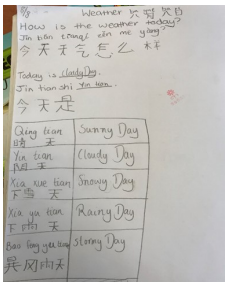 Weather
How is the weather today?
Jin tian tianqi zen me yang?
今天天气怎么样
Today is cloudy Day.
Jin tian shi Yin tian.
今天是
Qing tian Sunny Day
晴天
Yin tian Cloudy Day
阴天
Xia xue tian Snowy Day
下雪天
Xia yu tian Rainy Day
下雨天
Bao feng yu tian stormy Day
暴风雨天